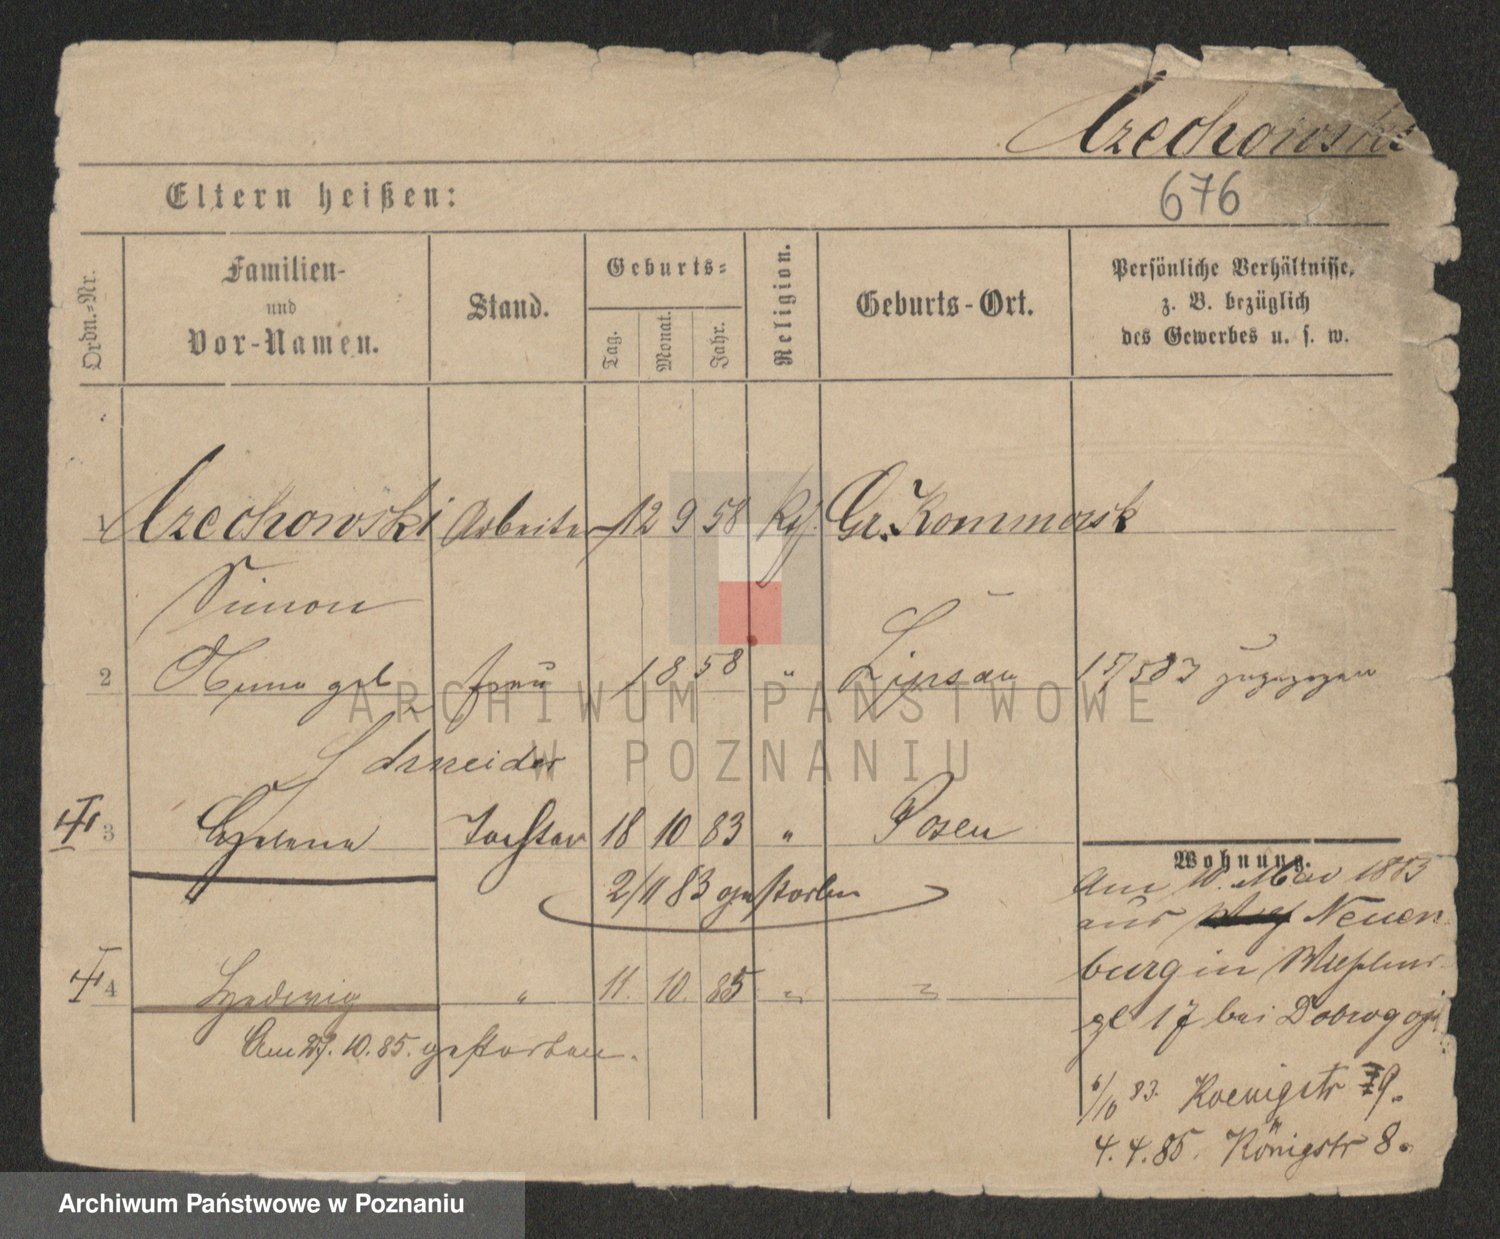 Czechowski
676
Eltern heißen:
Ordn.-Nr.
Familien-
und
Vor-Namen.
Stand.
Geburts-
Tag.
Monat.
Jahr.
Religion.
Geburts-Ort.
Persönliche Verhältnisse,
z. B. bezüglich
des Gewerbes u. s. w.
1 Czechowski Arbeiter 12 9 58 Gr. Kommorsk
Simon
2 geb frau 1 8 58 " 83 zugezogen
Schneider
3 Helena Tochter 18 10 83 " Posen
2/11 83 gestorben
Wohnung.
Am 10. Mai 1883
aus Neuen
burg in
gl 17 bei Dobrogoj
4 Hedwig " 11. 10. 85 " "
Am 27. 10. 85. gestorben.
6/10 83. Koenigstr 9.
4. 4. 85. Königstr 8.
ARCHIWUM PAŃSTWOWE
W POZNANIU
Archiwum Państwowe w Poznaniu